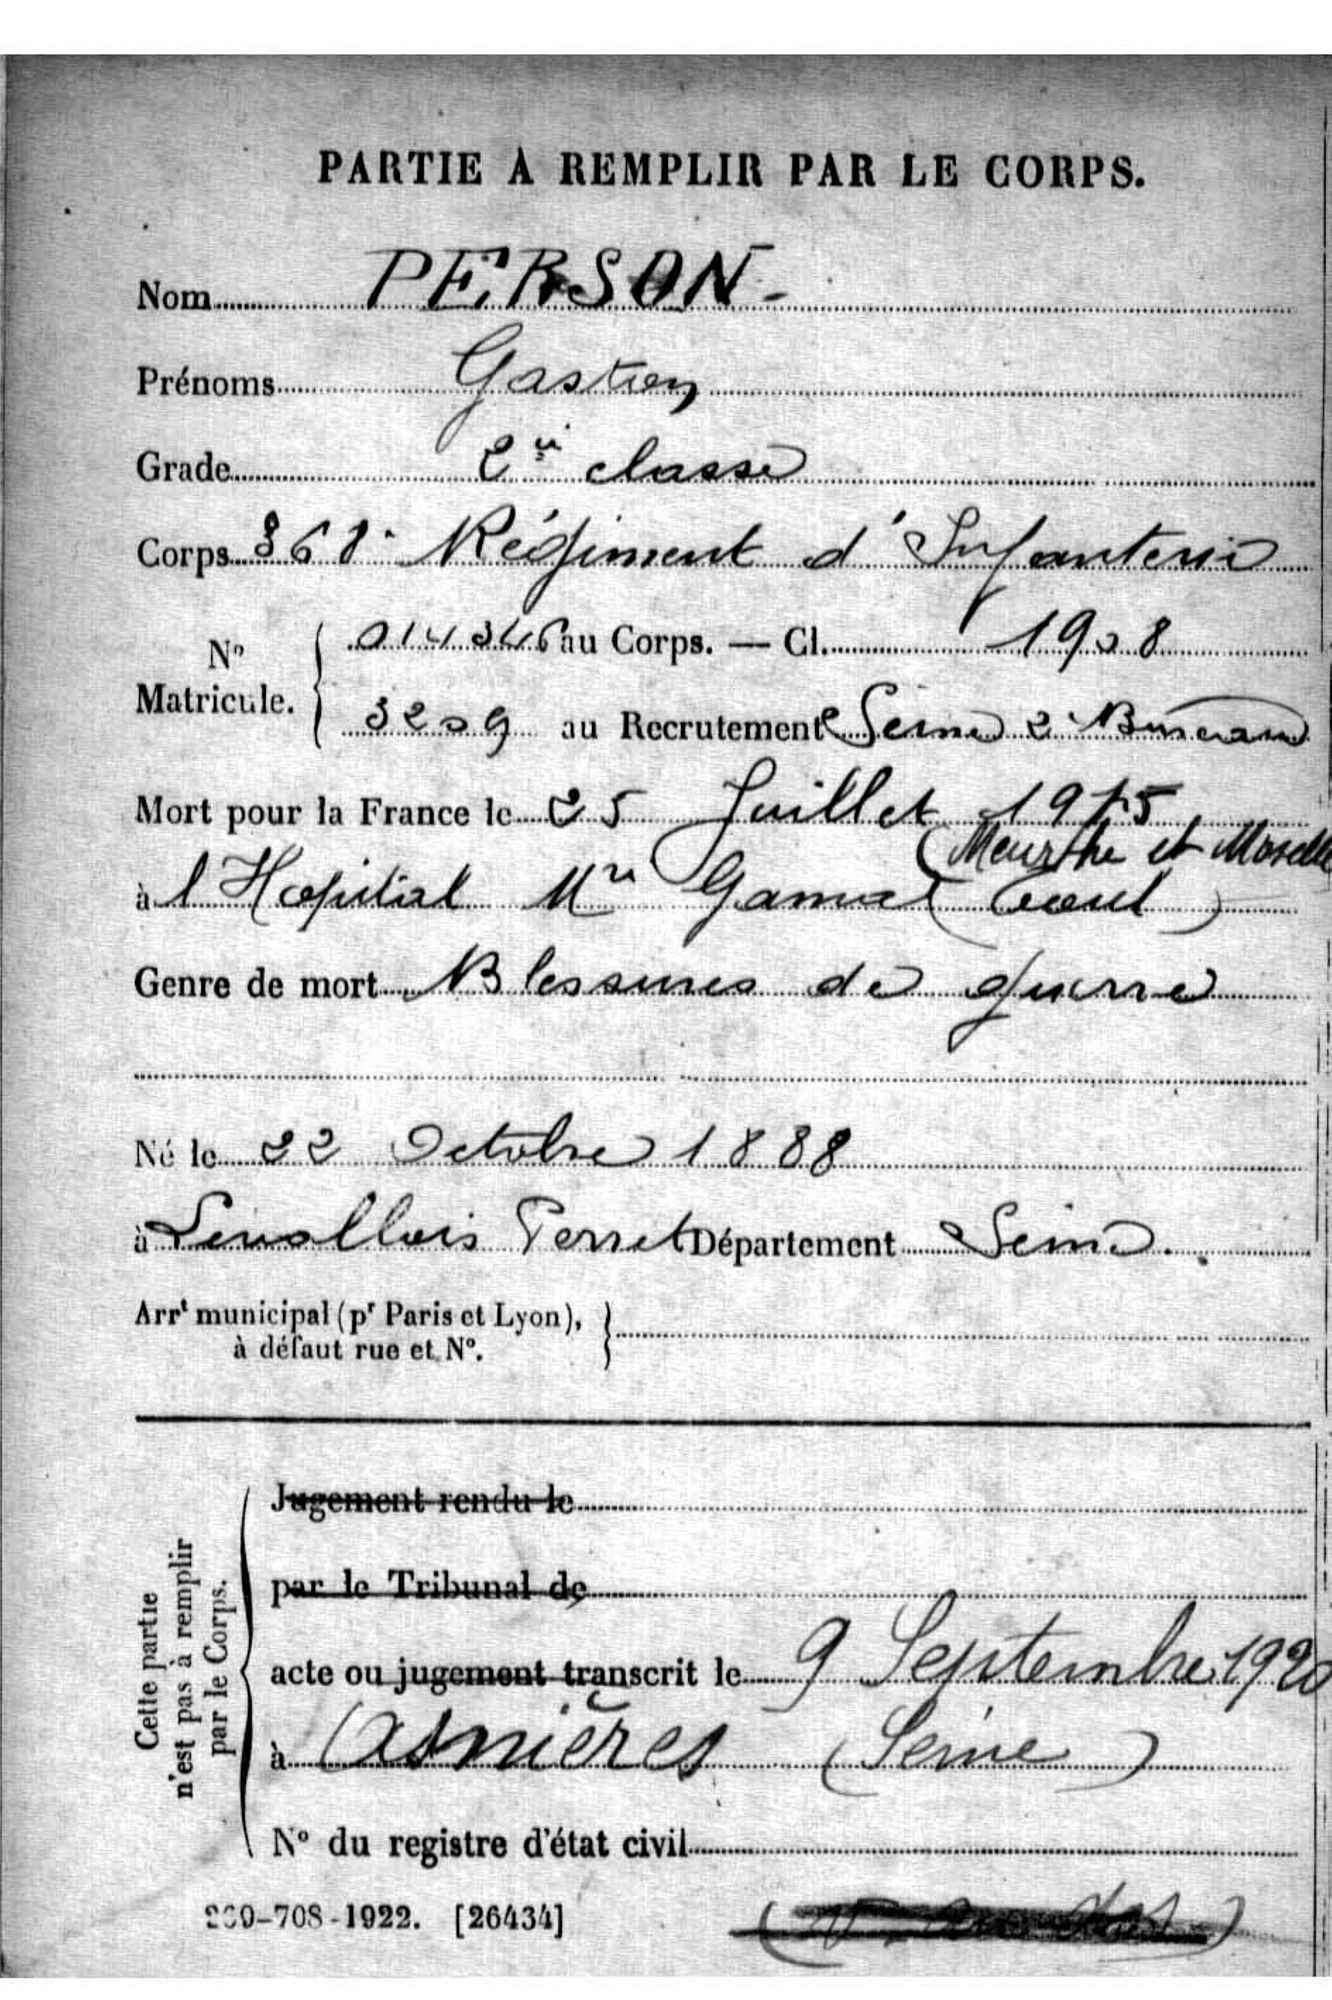 PARTIE À REMPLIR PAR LE CORPS.
Nom PERSON -
Prénoms Gaston
Grade 2e classe
Corps 368e Régiment d'Infanterie
No Matricule. { 014346 au Corps. — Cl. 1908
3209 au Recrutement Seine 2 Bureau
Mort pour la France le 25 Juillet 1915
(Meurthe et Moselle
à l'Hopital Mre Gama (Toul)
Genre de mort Blessures de guerre
Né le 22 Octobre 1888
à Levallois Perret Département Seine.
Arrt municipal (pr Paris et Lyon), }
à défaut rue et No.
Cette partie
n'est pas à remplir
par le Corps.
Jugement rendu le
par le Tribunal de
acte ou jugement transcrit le 9 Septembre 1920
à Asnières (Seine)
No du registre d'état civil
-708-1922. [26434]